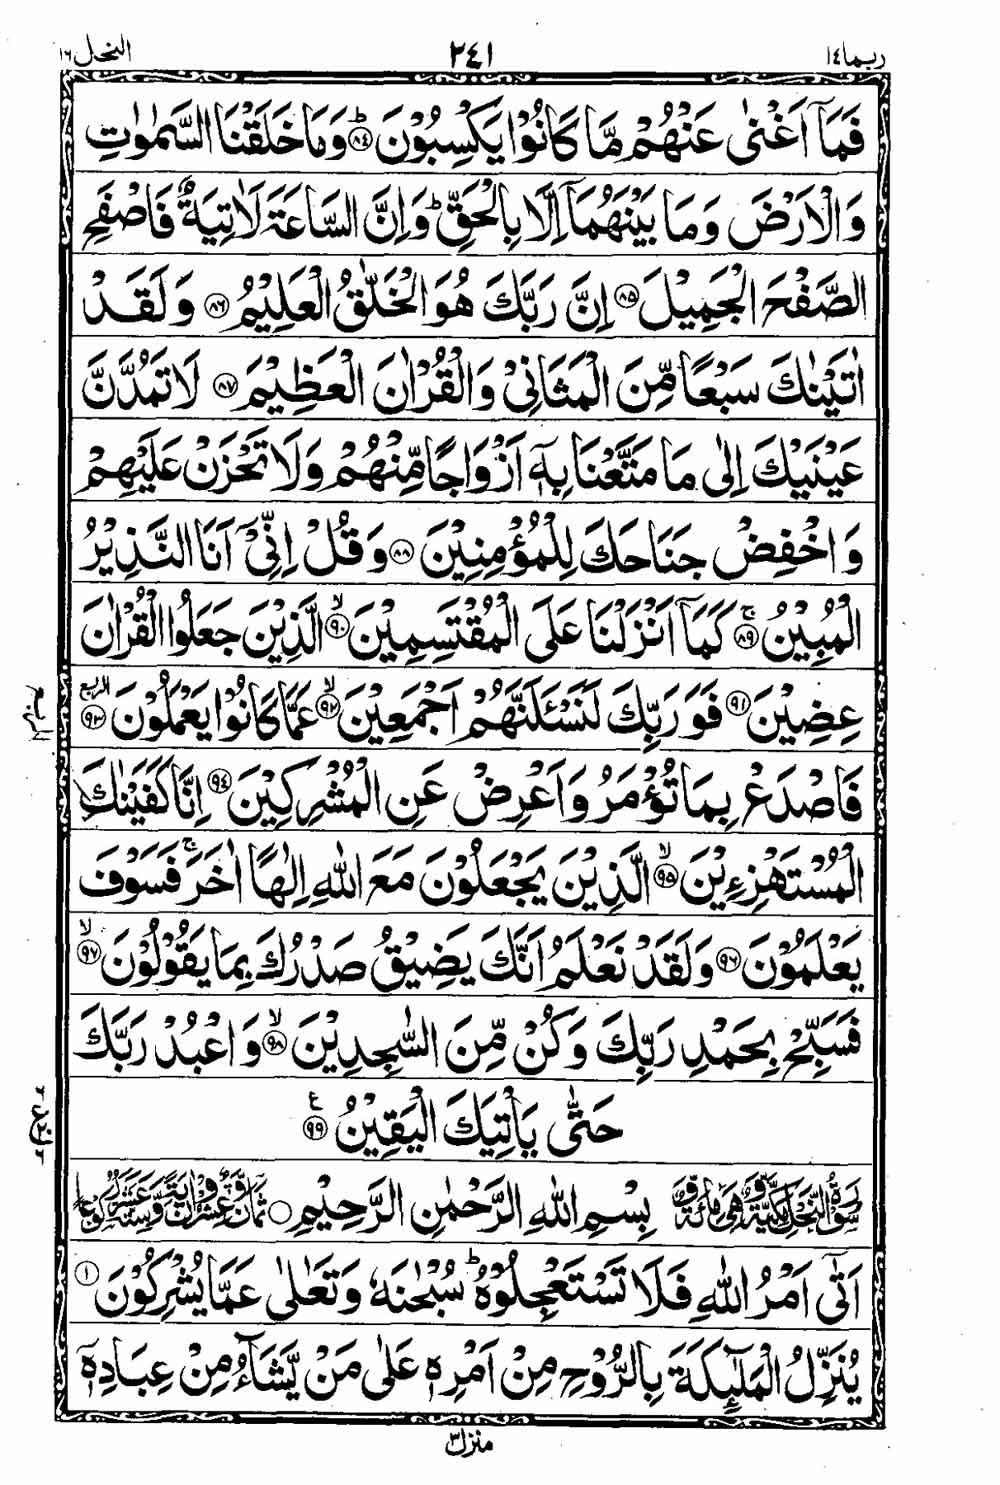 ربما ١٤
٢٤١
النحل ١٦
فَمَآ اَغْنٰى عَنْهُمْ مَّا كَانُوْا يَكْسِبُوْنَ ؕ﴿۸۴﴾ وَمَا خَلَقْنَا السَّمٰوٰتِ
وَالْاَرْضَ وَمَا بَيْنَهُمَاۤ اِلَّا بِالْحَقِّ ؕ وَاِنَّ السَّاعَةَ لَاٰتِيَةٌ فَاصْفَحِ
الصَّفْحَ الْجَمِيْلَ ﴿۸۵﴾ اِنَّ رَبَّكَ هُوَ الْخَلّٰقُ الْعَلِيْمُ ﴿۸۶﴾ وَلَقَدْ
اٰتَيْنٰكَ سَبْعًا مِّنَ الْمَثَانِيْ وَالْقُرْاٰنَ الْعَظِيْمَ ﴿۸۷﴾ لَا تَمُدَّنَّ
عَيْنَيْكَ اِلٰى مَا مَتَّعْنَا بِهٖۤ اَزْوَاجًا مِّنْهُمْ وَلَا تَحْزَنْ عَلَيْهِمْ
وَاخْفِضْ جَنَاحَكَ لِلْمُؤْمِنِيْنَ ﴿۸۸﴾ وَقُلْ اِنِّيْۤ اَنَا النَّذِيْرُ
الْمُبِيْنُ ۚ﴿۸۹﴾ كَمَاۤ اَنْزَلْنَا عَلَى الْمُقْتَسِمِيْنَ ۙ﴿۹۰﴾ الَّذِيْنَ جَعَلُوا الْقُرْاٰنَ
عِضِيْنَ ﴿۹۱﴾ فَوَرَبِّكَ لَنَسْئَلَنَّهُمْ اَجْمَعِيْنَ ۙ﴿۹۲﴾ عَمَّا كَانُوْا يَعْمَلُوْنَ ﴿۹۳﴾ الربع
فَاصْدَعْ بِمَا تُؤْمَرُ وَاَعْرِضْ عَنِ الْمُشْرِكِيْنَ ﴿۹۴﴾ اِنَّا كَفَيْنٰكَ
الْمُسْتَهْزِءِيْنَ ۙ﴿۹۵﴾ الَّذِيْنَ يَجْعَلُوْنَ مَعَ اللّٰهِ اِلٰهًا اٰخَرَ ۚ فَسَوْفَ
يَعْلَمُوْنَ ﴿۹۶﴾ وَلَقَدْ نَعْلَمُ اَنَّكَ يَضِيْقُ صَدْرُكَ بِمَا يَقُوْلُوْنَ ۙ﴿۹۷﴾
فَسَبِّحْ بِحَمْدِ رَبِّكَ وَكُنْ مِّنَ السّٰجِدِيْنَ ۙ﴿۹۸﴾ وَاعْبُدْ رَبَّكَ
حَتّٰى يَاْتِيَكَ الْيَقِيْنُ ﴿۹۹﴾ ع
سورة النحل مكية وهى مائة و بِسْمِ اللّٰهِ الرَّحْمٰنِ الرَّحِيْمِ ○ ثمان وعشرون اية وستة عشر ركوعا
اَتٰۤى اَمْرُ اللّٰهِ فَلَا تَسْتَعْجِلُوْهُ ؕ سُبْحٰنَهٗ وَتَعٰلٰى عَمَّا يُشْرِكُوْنَ ﴿۱﴾
يُنَزِّلُ الْمَلٰٓئِكَةَ بِالرُّوْحِ مِنْ اَمْرِهٖ عَلٰى مَنْ يَّشَآءُ مِنْ عِبَادِهٖۤ
منزل ٣